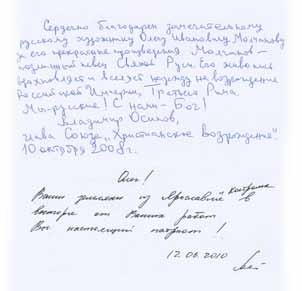 Сердечно благодарен замечательному
русскому художнику Олегу Ивановичу Молчанову
за его прекрасные произведения. Молчанов –
подлинный певец Святой Руси. Его живопись
вдохновляет и вселяет надежду на возрождение
Российской Империи, Третьего Рима.
Мы русские! С нами – Бог!
Владимир Осипов,
глава Союза „Христианское возрождение“.
10 октября 2008г.
Олег!
Ваши земляки из Ярославля, Кострома
в восторге от Ваших работ
Вы настоящий патриот!
12.06.2010